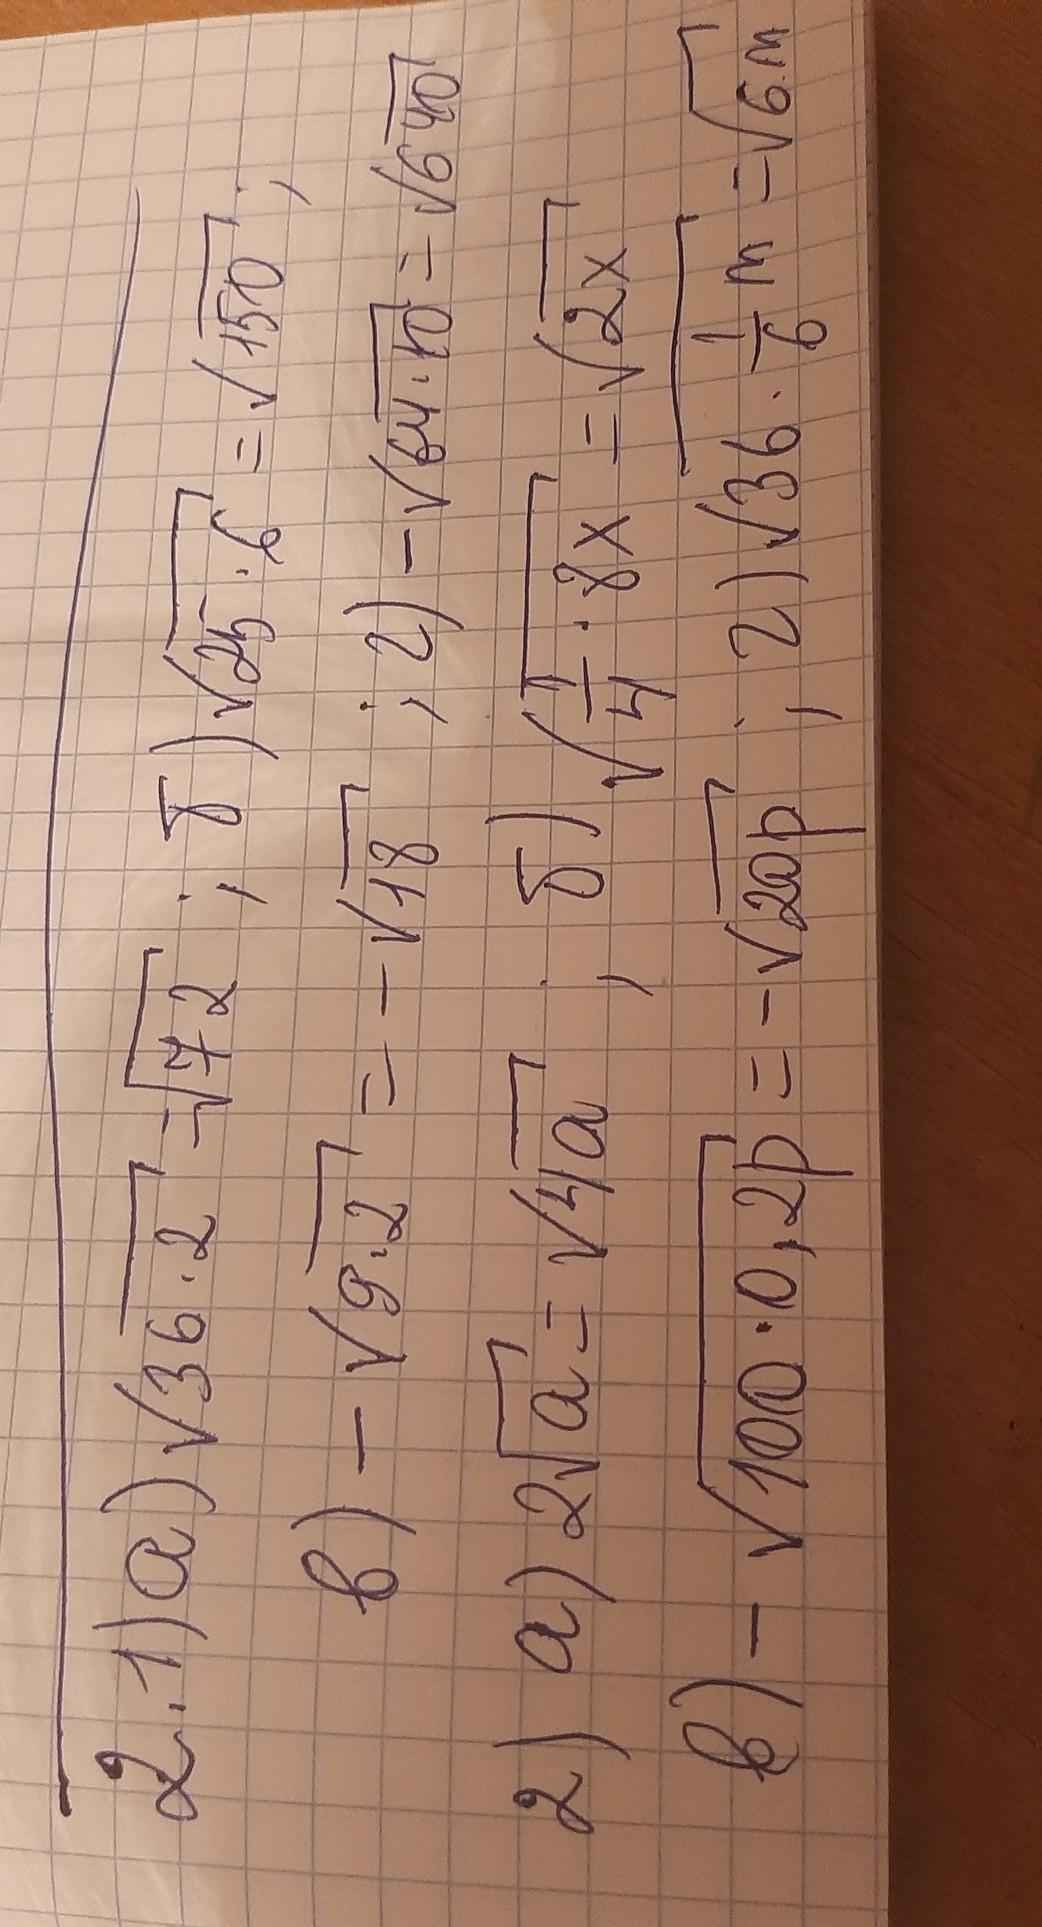 2. 1) а) √36·2 = √72 ; б) √25·6 = √150 ;
в) - √9·2 = - √18 ; г) - √64·10 = √640
2) а) 2√a = √4a ; б) √1/4 · 8x = √2x
в) - √100·0,2p = - √20p ; г) √36 · 1/6 m = √6m